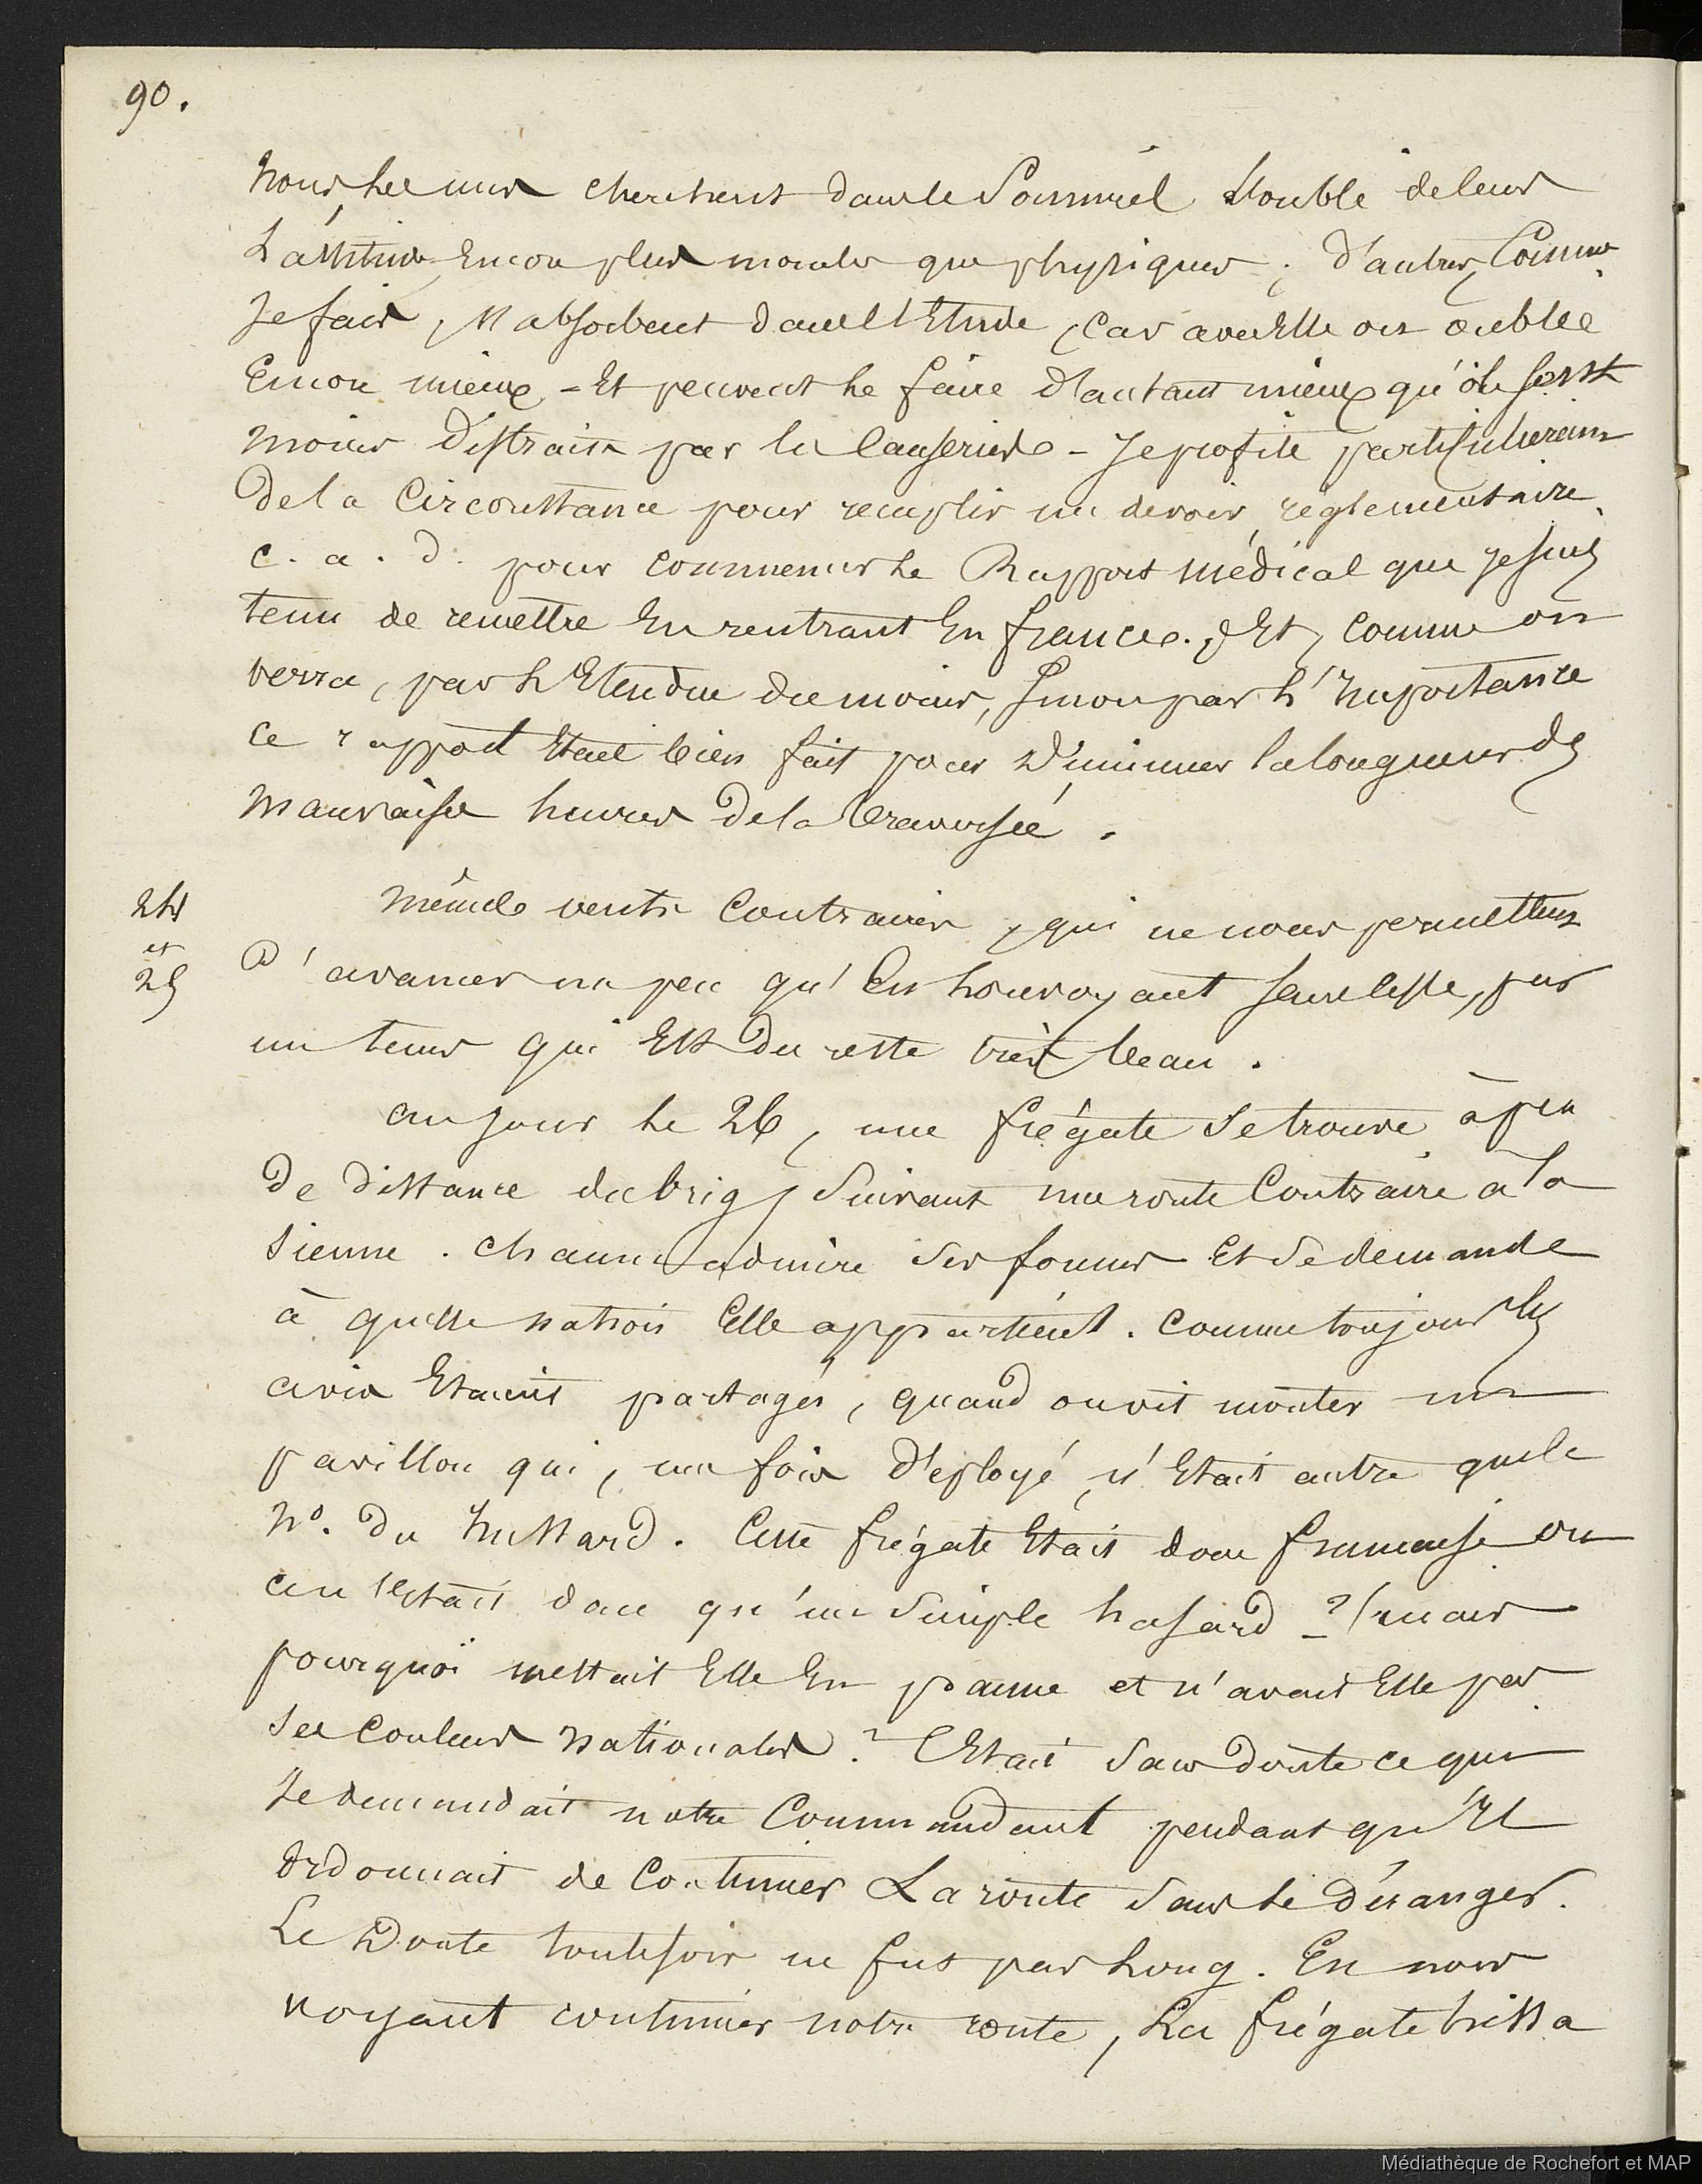 90.
nous, les uns cherchent dans le Sommeil l'oubli de leurs
Lassitudes encore plus morales que physiques ; d'autres, Comme
Je fais, s'absorbent dans l'Etude, car avec Elle on oublie
Encore mieux - Et peuvent le faire d'autant mieux qu'ils sont
moins distraits par les Causeries - Je profite particulierem
De la Circonstance pour remplir un devoir réglementaire,
c. a. d. pour commencer le Rapport médical que Je suis
tenu de remettre En rentrant En france. Et, comme on
verra, par l'Etendue du moins, Sinon par l'Importance
ce rapport Etait bien fait pour Diminuer la longueur des
mauvaises heures De la traversée.
24
et
25
Mêmes vents Contraires, qui ne nous permettent
D'avancer un peu qu'En louvoyant sans cesse, par
un tems qui Est Du reste très beau.
au jour le 26, une frégate se trouve à peu
De distance du brig, Suivant une route Contraire à la
Sienne. Chacun admire ses formes Et se demande
à quelle nation Elle appartient. Comme toujours les
avis Etaient partagés, quand on vit monter un
pavillon qui, une fois Déployé, n'Etait autre que le
No. Du Hussard. Cette frégate Etait donc francaise ou
ce n'Etait donc qu'un Simple hasard ? mais
pourquoi mettait Elle En panne et n'avait Elle pas
ses Couleurs nationales ? C'Etait Sans Doute ce que
se demandait notre Commandant pendant qu'Il
ordonnait de Continuer La route Sans se Déranger.
Le Doute toutefois ne fut pas Long. En nous
voyant continuer notre route, La frégate hissa
Médiathèque de Rochefort et MAP